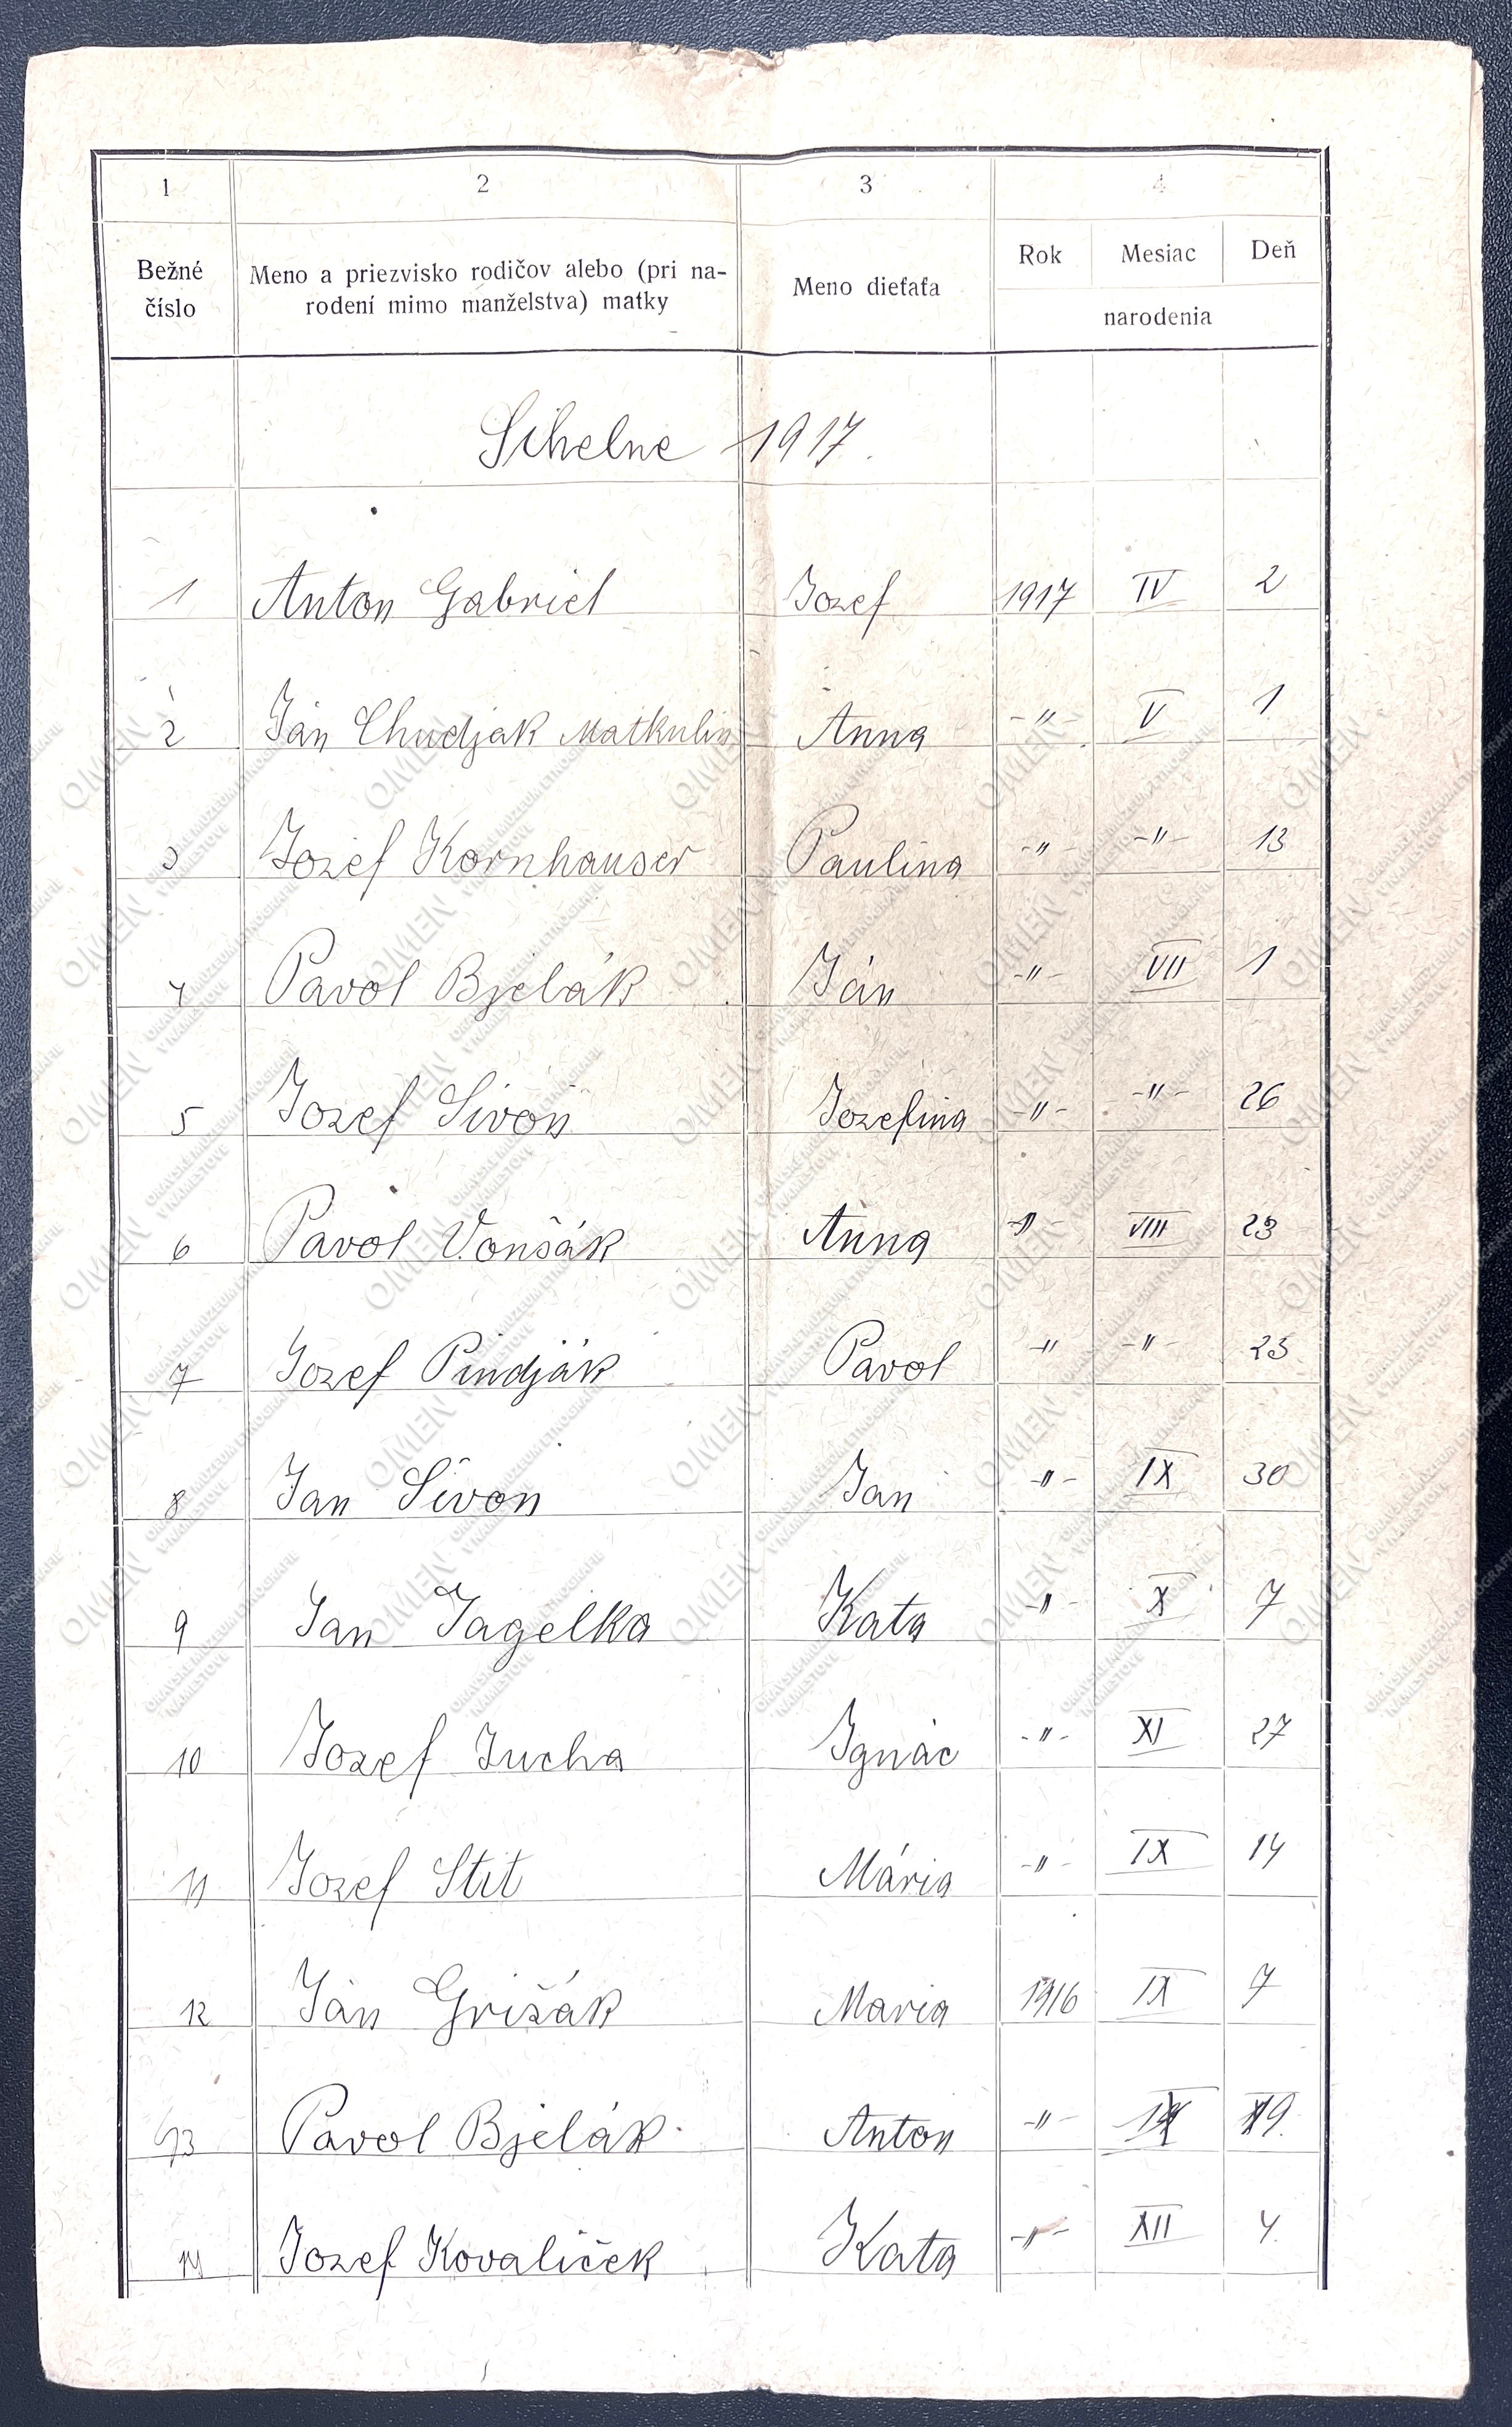 1 2 3 4
Bežné číslo
Meno a priezvisko rodičov alebo (pri na-
rodení mimo manželstva) matky
Meno dieťaťa
Rok Mesiac Deň
narodenia
Sihelne 1917.
1 Anton Gabriel Jozef 1917 IV 2
2 Ján Chudjak Matkulin Anna -"- V 1
3 Jozef Kornhauser Paulina -"- -"- 13
4 Pavol Bjelák Ján -"- VII 1
5 Jozef Sivoň Jozefina -"- -"- 26
6 Pavol Vonšák Anna -"- VIII 23
7 Jozef Pindják Pavol -"- -"- 23
8 Jan Sivon Jan -"- IX 30
9 Jan Jagelka Kata -"- X 7
10 Jozef Jucha Ignác -"- XI 27
11 Jozef Stit Mária -"- IX 14
12 Ján Grižák Maria 1916 IX 7
13 Pavol Bjelák Anton -"- 19.
14 Jozef Kovalíček Kata -"- XII 4.
OMEN
ORAVSKÉ MÚZEUM ETNOGRAFIE
V NÁMESTOVE